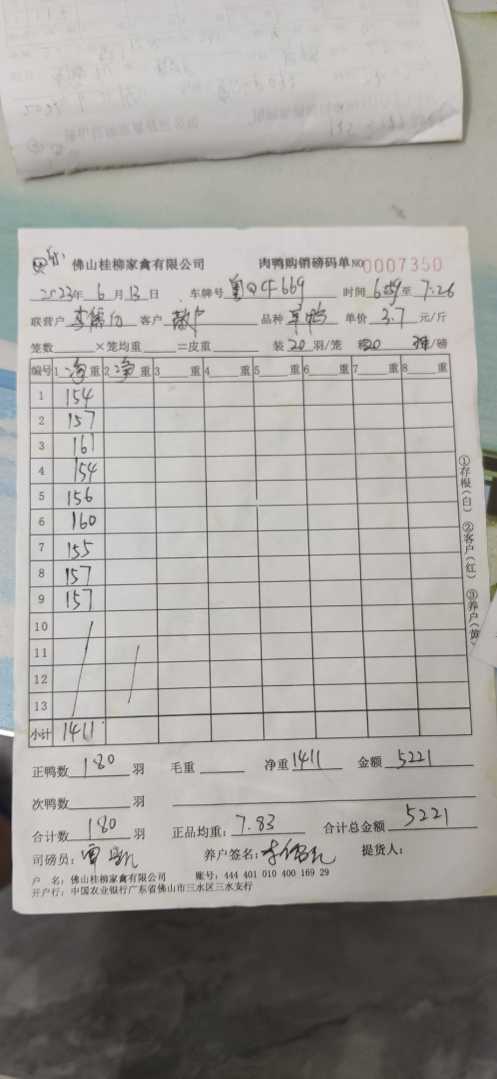 佛山桂柳家禽有限公司 肉鸭购销磅码单 NO 0007350
2023年 6 月 13 日 车牌号 669 时间 659 至 7:26
联营户 李 客户 散户 品种 草鸭 单价 3.7 元/斤
笼数 ×笼均重 =皮重 装 20 羽/笼 20 /磅
编号 1 净 重 2 净 重 3 重 4 重 5 重 6 重 7 重 8 重
1 154
2 157
3 161
4 154
5 156
6 160
7 155
8 157
9 157
10
11
12
13
小计 1411
①存根(白) ②客户(红) ③养户(黄)
正鸭数 180 羽 毛重 净重 1411 金额 5221
次鸭数 羽
合计数 180 羽 正品均重: 7.83 合计总金额 5221
司磅员: 养户签名: 李 提货人:
户 名: 佛山桂柳家禽有限公司 账号: 444 401 010 400 169 29
开户行: 中国农业银行广东省佛山市三水区三水支行